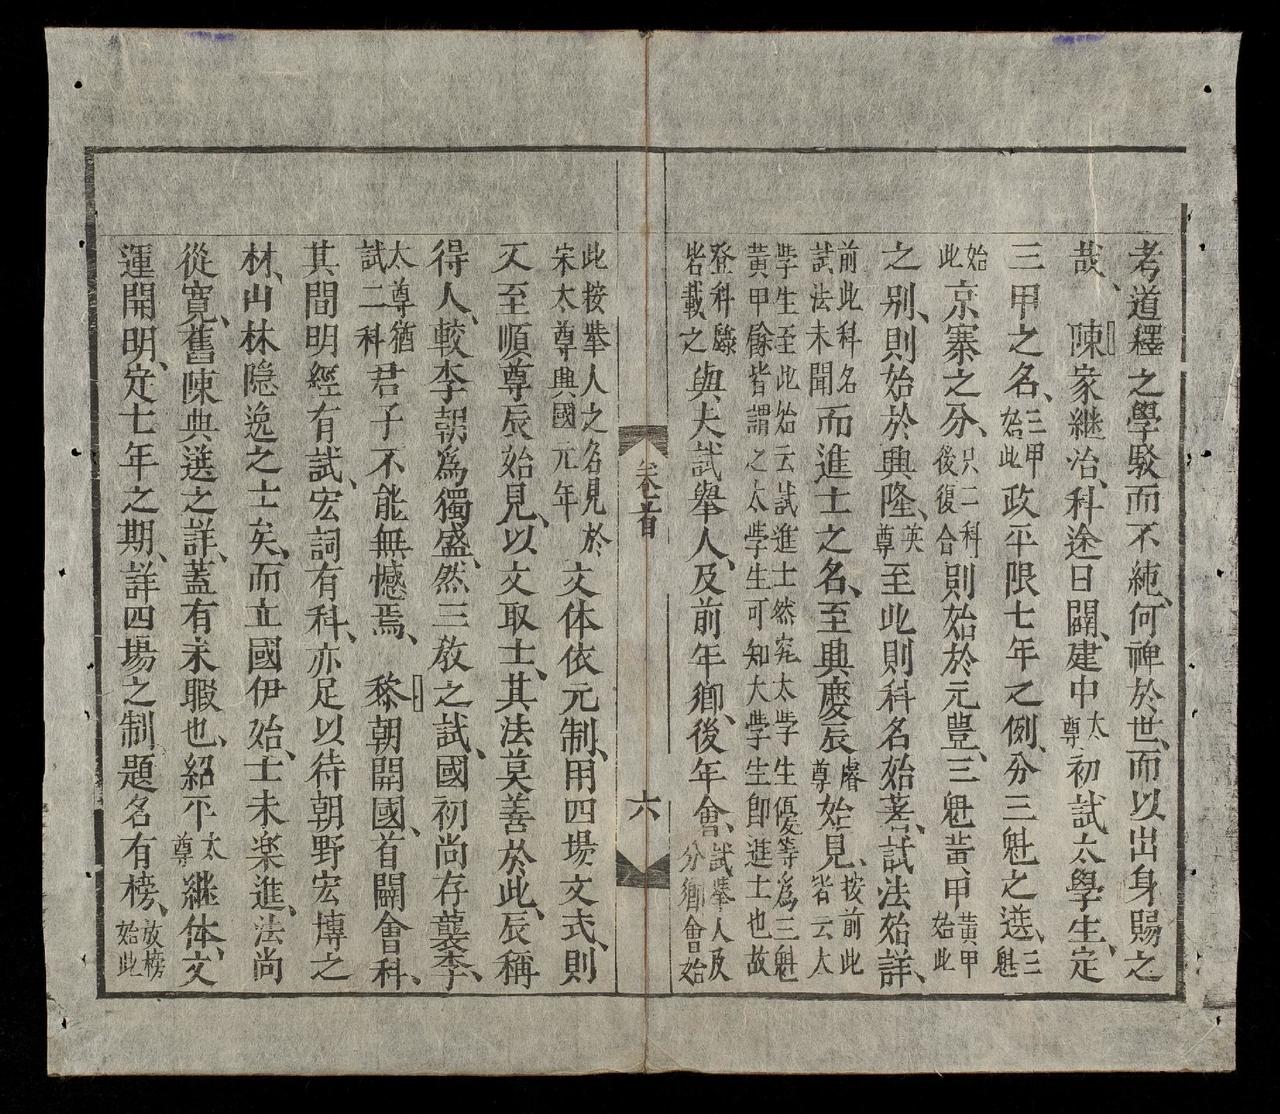 考道釋之學駁而不純、何裨於世、而以出身賜之
哉、陳家繼治、科途日闢、建中太尊初試太學生、定
三甲之名、三甲始此政平限七年之例、分三魁之選、三魁
始此京寨之分、只二科後復合則始於元豐、三魁黃甲黃甲始此
之别、則始於興隆、英尊至此則科名始著、試法始詳、
前此科名試法未聞而進士之名、至興慶辰睿尊始見、按前此皆云太
學生至此始云試進士然究太学生優等為三魁黃甲餘皆謂之太学生可知大学生即進士也故
登科錄皆載之與夫試舉人、及前年鄉、後年會、試舉人及分鄉會始
此按舉人之名見於宋太尊典國元年文体依元制、用四塲文式、則
又至順尊辰始見、以文取士、其法莫善於此、辰稱
得人、較李朝為獨盛、然三教之試、國初尚存襲李、
太尊猶試二科君子不能無憾焉、黎朝開國、首闢會科、
其間明經有試、宏詞有科、亦足以待朝野宏博之
材、山林隐逸之士矣、而立國伊始、士未楽進、法尚
從寛、舊陳典選之詳、蓋有未暇也、紹平太尊継体、文
運開明、定七年之期、詳四塲之制、題名有榜、放榜始此
卷首
六